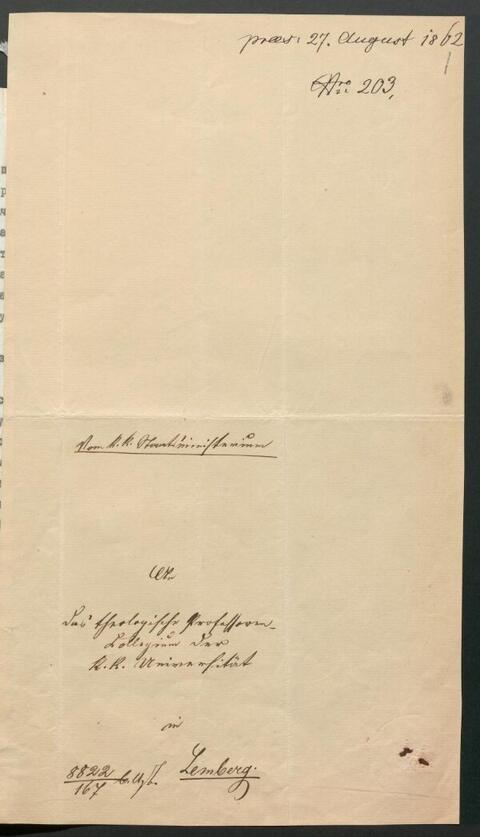 praes: 27. August 1862
Nro. 203.
Vom k. k. Staatsministerium
An
das theologische Professoren-
Collegium der
k. k. Universität
in
Lemberg.
8822
167